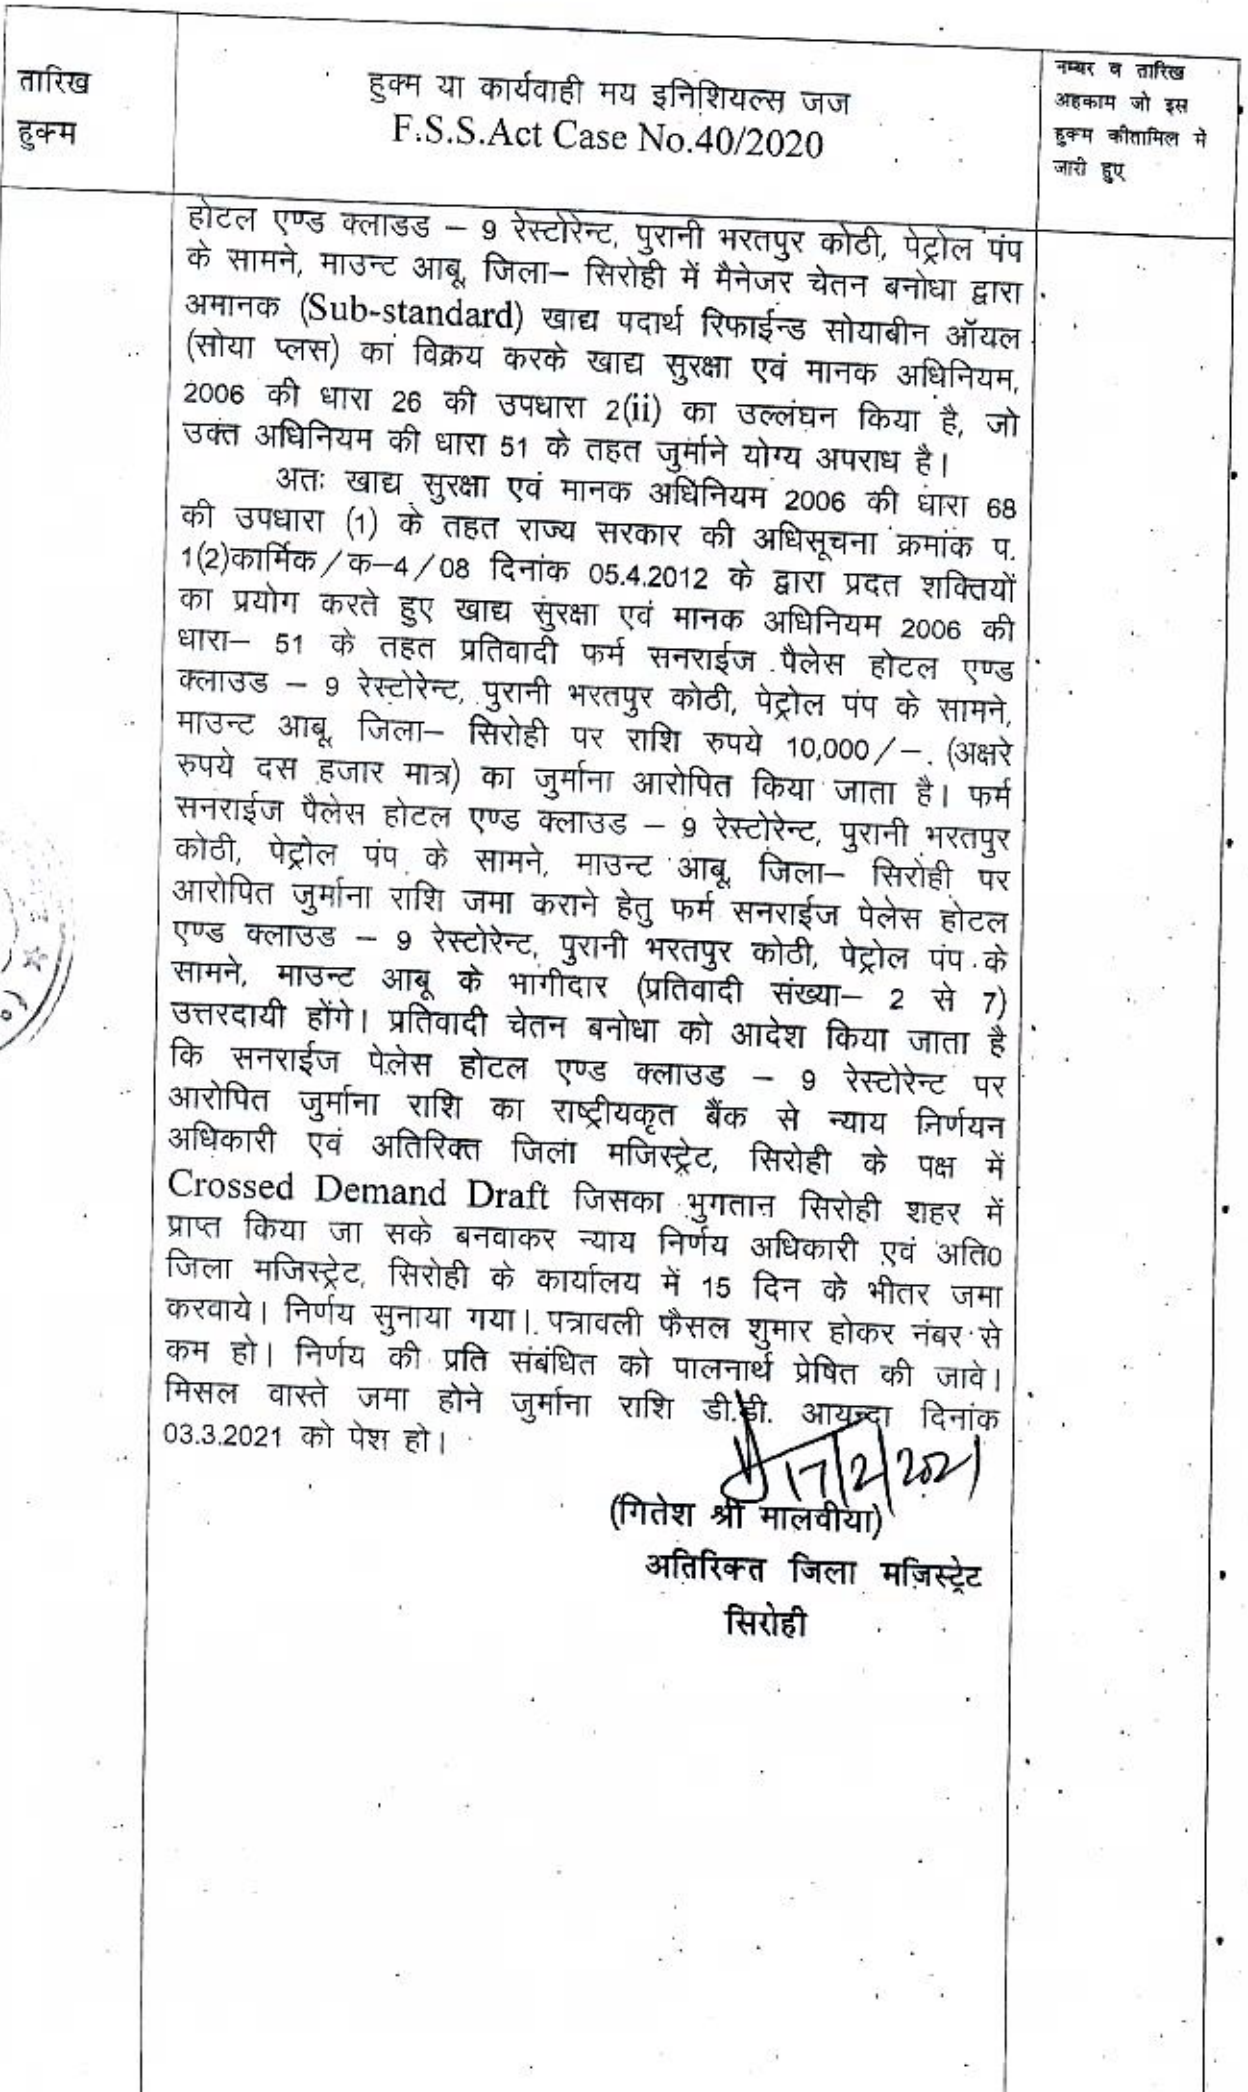 तारिख
हुक्म
हुक्म या कार्यवाही मय इनिशियल्स जज
F.S.S.Act Case No.40/2020
नम्बर व तारिख
अहकाम जो इस
हुक्म कीतामिल में
जारी हुए
होटल एण्ड क्लाडड – 9 रेस्टोरेन्ट, पुरानी भरतपुर कोठी, पेट्रोल पंप
के सामने, माउन्ट आबू, जिला– सिरोही में मैनेजर चेतन बनोधा द्वारा
अमानक (Sub-standard) खाद्य पदार्थ रिफाईन्ड सोयाबीन ऑयल
(सोया प्लस) का विक्रय करके खाद्य सुरक्षा एवं मानक अधिनियम,
2006 की धारा 26 की उपधारा 2(ii) का उल्लंघन किया है, जो
उक्त अधिनियम की धारा 51 के तहत जुर्माने योग्य अपराध है।
अतः खाद्य सुरक्षा एवं मानक अधिनियम 2006 की धारा 68
की उपधारा (1) के तहत राज्य सरकार की अधिसूचना क्रमांक प.
1(2)कार्मिक/क–4/08 दिनांक 05.4.2012 के द्वारा प्रदत शक्तियों
का प्रयोग करते हुए खाद्य सुरक्षा एवं मानक अधिनियम 2006 की
धारा– 51 के तहत प्रतिवादी फर्म सनराईज पैलेस होटल एण्ड
क्लाउड – 9 रेस्टोरेन्ट, पुरानी भरतपुर कोठी, पेट्रोल पंप के सामने,
माउन्ट आबू, जिला– सिरोही पर राशि रुपये 10,000/–. (अक्षरे
रुपये दस हजार मात्र) का जुर्माना आरोपित किया जाता है। फर्म
सनराईज पैलेस होटल एण्ड क्लाउड – 9 रेस्टोरेन्ट, पुरानी भरतपुर
कोठी, पेट्रोल पंप के सामने, माउन्ट आबू, जिला– सिरोही पर
आरोपित जुर्माना राशि जमा कराने हेतु फर्म सनराईज पेलेस होटल
एण्ड क्लाउड – 9 रेस्टोरेन्ट, पुरानी भरतपुर कोठी, पेट्रोल पंप के
सामने, माउन्ट आबू के भागीदार (प्रतिवादी संख्या– 2 से 7)
उत्तरदायी होंगे। प्रतिवादी चेतन बनोधा को आदेश किया जाता है
कि सनराईज पेलेस होटल एण्ड क्लाउड – 9 रेस्टोरेन्ट पर
आरोपित जुर्माना राशि का राष्ट्रीयकृत बैंक से न्याय निर्णयन
अधिकारी एवं अतिरिक्त जिला मजिस्ट्रेट, सिरोही के पक्ष में
Crossed Demand Draft जिसका भुगतान सिरोही शहर में
प्राप्त किया जा सके बनवाकर न्याय निर्णय अधिकारी एवं अति0
जिला मजिस्ट्रेट, सिरोही के कार्यालय में 15 दिन के भीतर जमा
करवाये। निर्णय सुनाया गया। पत्रावली फैसल शुमार होकर नंबर से
कम हो। निर्णय की प्रति संबंधित को पालनार्थ प्रेषित की जावे।
मिसल वास्ते जमा होने जुर्माना राशि डी.डी. आयन्दा दिनांक
03.3.2021 को पेश हो।
17/2/2021
(गितेश श्री मालवीया)
अतिरिक्त जिला मजिस्ट्रेट
सिरोही